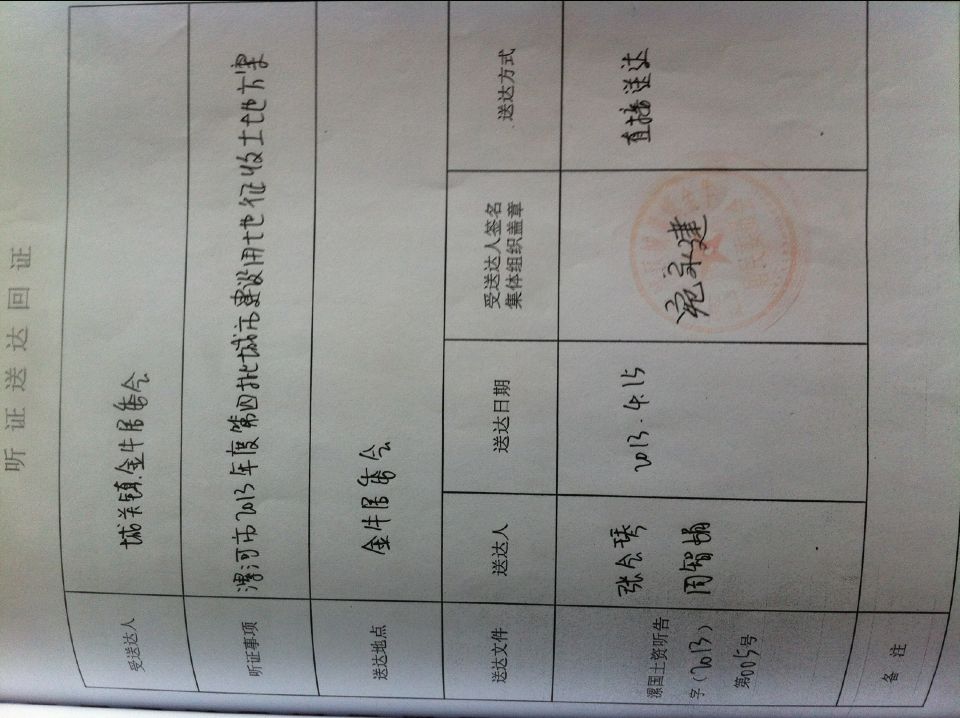 听证送达回证
受送达人 城关镇金牛居委会
听证事项 漯河市2013年度第四批城市建设用地征收土地方案
送达地点 金牛居委会
送达文件 送达人 送达日期 受送达人签名 集体组织盖章 送达方式
漯国土资听告字(2013)第005号 张会琴 周智娟 2013.4.15 永建 直接送达
备注